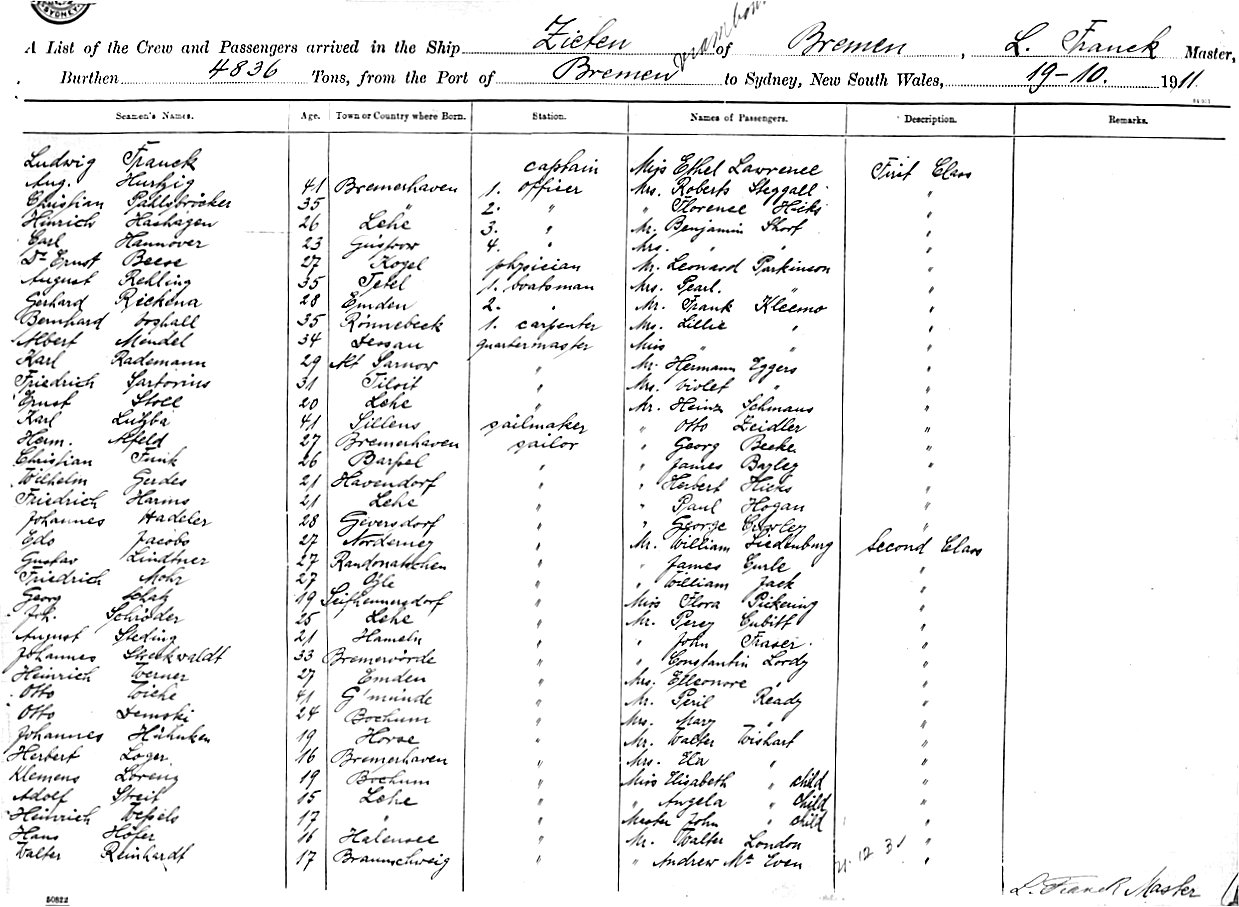 SYDNEY
A List of the Crew and Passengers arrived in the Ship Zieten of Bremen, L. Franck Master,
Burthen 4836 Tons, from the Port of Bremen to Sydney, New South Wales, 19-10. 1911.
Seamen's Names. Age. Town or Country where Born. Station. Names of Passengers. Description. Remarks.
Ludwig Franck captain Miss Ethel Lawrence First Class
Aug. 41 Bremerhaven 1. officer Mrs. Roberts Steggall "
Christian 35 " 2. " " Florence Hicks "
Hinrich Hashagen 26 Lehe 3. " Mr. Benjamin "
Carl Hannover 23 Güstrow 4. " Mrs. " " "
Dr Ernst Beese 27 Kogel physician Mr. Leonard Parkinson "
August Rehling 35 Tetel 1. boatsman Mrs. Pearl. " "
Gerhard Rickena 28 Emden 2. " Mr. Frank Kleemo "
Bernhard 35 Rönnebeck 1. carpenter Mrs. Lillie " "
Albert Mendel 34 Dessau quartermaster Miss " " "
Karl Rademann 29 Alt Sarnow " Mr. Hermann Eggers "
Friedrich Sartorius 31 Tilsit " Mrs. Violet " "
Ernst Stoll 20 Lehe " Mr. Heinz Schmaus "
Karl 41 Sillens sailmaker " Otto Zeidler "
Herm. Afeld 27 Bremerhaven sailor " Georg Beeke "
Christian Funk 26 Barßel " " James Bayley "
Wilhelm Gerdes 21 Havendorf " " Herbert Hicks "
Friedrich Harms 21 Lehe " " Paul Hogan "
Johannes Hadeler 28 Geversdorf " " George "
Edo Jacobs 27 Norderney " Mr. William Liedenburg Second Class
Gustav Lindtner 27 " " James Gurle "
Friedrich Mohr 27 " " William Jack "
Georg Schatz 19 Seifhennersdorf " Miss Flora Pickering "
Joh. Schröder 25 Lehe " Mr. Percy Cubitt "
August Steding 21 Hameln " " John Fraser. "
Johannes 33 Bremervörde " " Constantin Lordy "
Heinrich Werner 27 Emden " Mrs. Elleonore " "
Otto Wiehe 41 G'münde " Mr. Peril Ready "
Otto Demski 24 Bochum " Mrs. Mary " "
Johannes Hühnken 19 " Mr. Walter Wishart "
Herbert Loger. 16 Bremerhaven " Mrs. Ela " "
Klemens Lorenz 19 Bochum " Miss Elisabeth " child "
Adolf Streit 15 Lehe " " Angela " child "
Heinrich Wessels 17 " " Master John " child "
Hans Höfer 16 Halensee " Mr. Walter London "
Walter Reinhardt 17 Braunschweig " " Andrew Mc Even "
L. Franck Master
50822